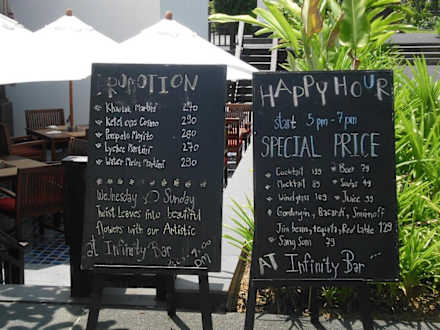 PROMOTION
Martini 270
Ketel one Cosmo 290
Pomegato Mojito 280
Lychee Martini 270
Water Melon Martini 280
Wednesday Sunday
Twist Leaves into beautiful
flowers with our Artistic
at Infinity Bar
HAPPY HOUR
start 5 pm - 7 pm
SPECIAL PRICE
Cocktail 159 Beer 79
Mocktail 89 Soda 49
Juice 99
Gordongin, Bacardi, Smirnoff
Jim beam, tequila, Red lable 129
Sang Som 79
AT Infinity Bar